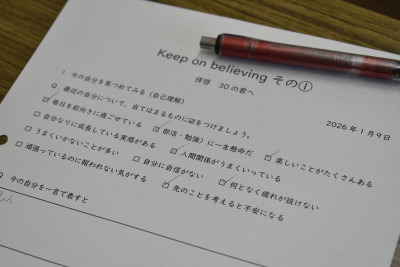 Keep on believing その①
拝啓 30の君へ
2026年1月9日
1 今の自分を見つめてみる（自己理解）
□ 最近の自分について、当てはまるものに☑をつけましょう。
☑ 毎日を前向きに過ごせている ☑（部活・勉強）に一生懸命だ ☑ 楽しいことがたくさんある
□ 自分なりに成長している実感がある ☑ 人間関係がうまくいっている
□ うまくいかないことが多い □ 自分に自信がない ☑ 何となく疲れが抜けない
□ 頑張っているのに報われない気がする ☑ 先のことを考えると不安になる
今の自分を一言で表すと